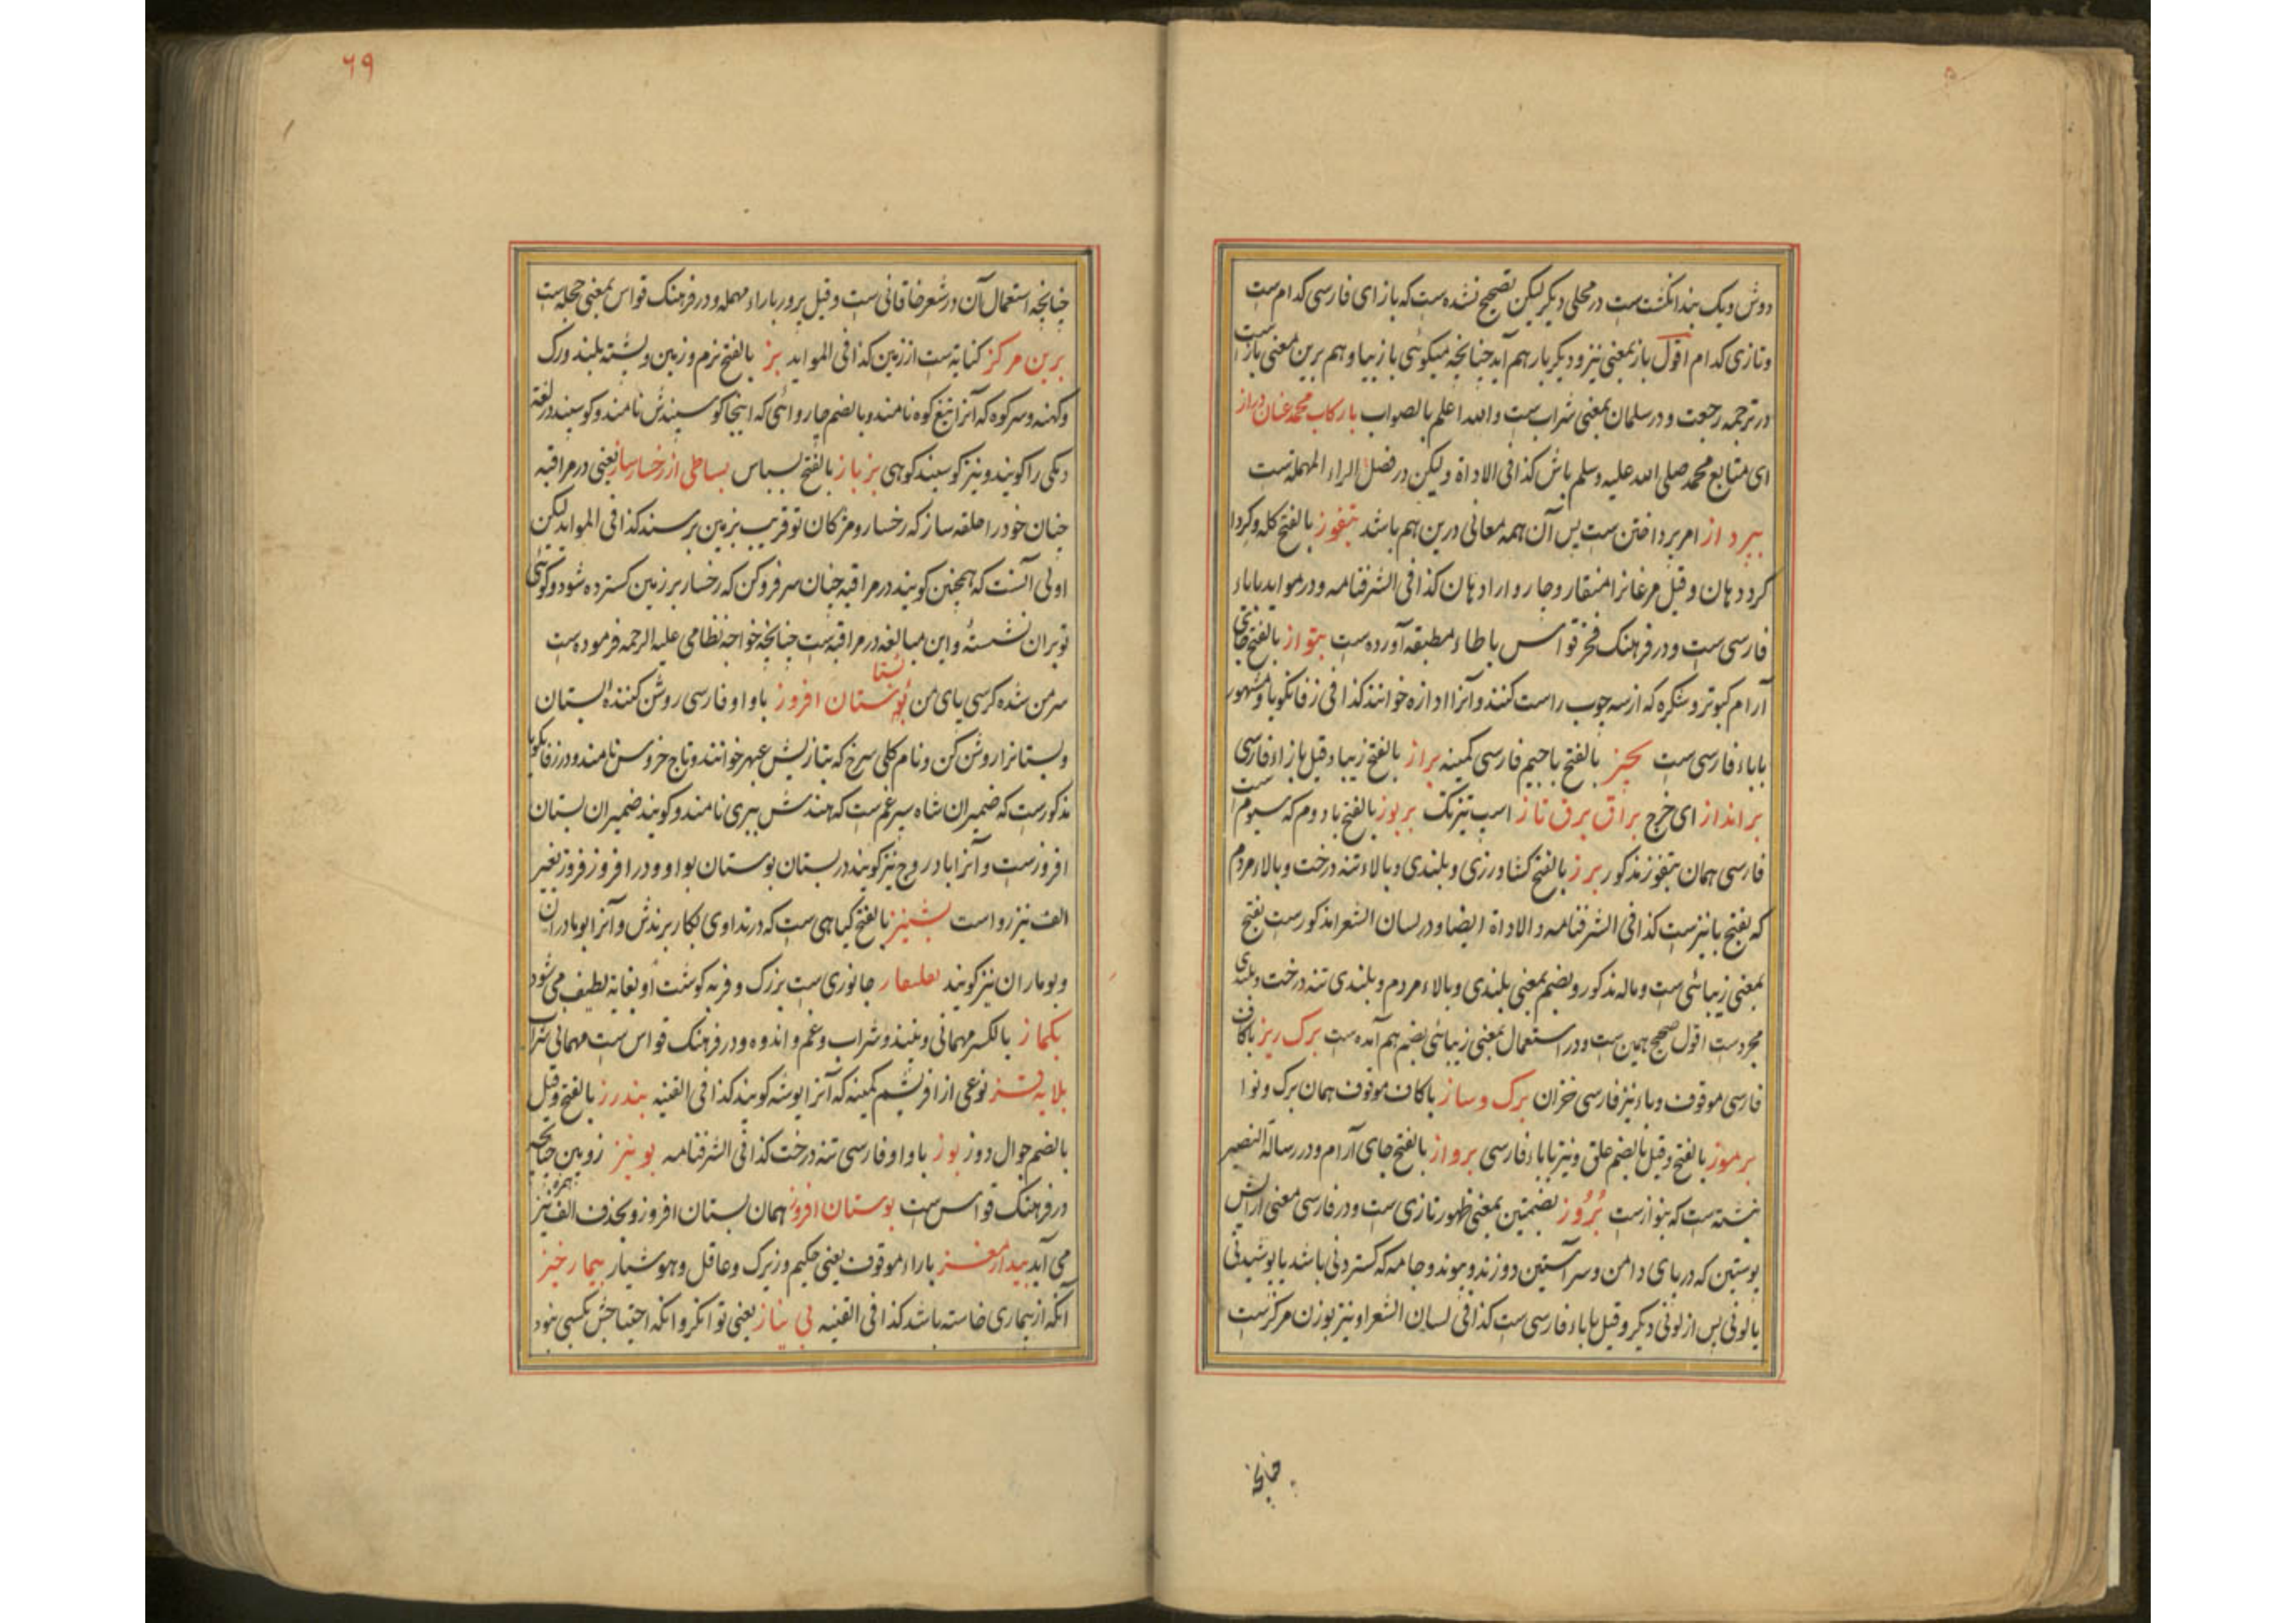 دوش و یک بند انگشت ست در محلی دیگر لیکن تصحیح نشده ست که بازای فارسی کدام ست
و تازی کدام اقول باز بمعنی نیز و دیگر بار هم آید چنانچه میگوئی باز بیا و هم برین معنی باز است
در ترجمه رجعت و در سلمان بمعنی شراب ست و الله اعلم بالصواب با رکاب محمد عنان دراز
ای متابع محمد صلی الله علیه وسلم باش کذا فی الاداة ولیکن در فصل الراء المهملة ست
بپرداز امر پرداختن ست پس آن همه معانی درین هم باشد بتفوز بالفتح کله و کردا
کرد دهان و قیل مرغانرا منقار و چاروارا دهان کذا فی الشرفنامه و در مواید باباء
فارسی ست و در فرهنک فخر قواس با طاء مطبقه آورده ست بتواز بالفتح جای
آرام کبوتر و شکره که از سه چوب راست کنند و آنرا اداره خوانند کذا فی زفانکویا و مشهور
باباء فارسی ست بچیز بالفتح با جیم فارسی کمینه براز بالفتح زیبا و قیل بازاء فارسی
برانداز ای خرج براق برق تاز اسپ تیزتک بربوز بالفتح با دوم که سیوم ست
فارسی همان بتفوز مذکور برز بالفتح کشاورزی و بلندی و بالاء تنه درخت و بالاء مردم
که بفتح با نیز ست کذا فی الشرفنامه و الاداة ایضا و در لسان الشعرا مذکور ست بفتح
بمعنی زیبائی ست و ماله مذکور و بضم بمعنی بلندی و بالاء مردم و بلندی تنه درخت و بلندی
مجرد ست اقول صحیح همین ست و در استعمال بمعنی زیبائی بضم هم آمده ست برک ریز با کاف
فارسی موقوف و یاء نیز فارسی خزان برک و ساز با کاف موقوف همان برک و نوا
برموز بالفتح و قیل بالضم علق و نیز باباء فارسی برواز بالفتح جای آرام و در رسالة النصیر
نبشته ست که بتواز ست بروز بضمتین بمعنی ظهور تازی ست و در فارسی معنی اراش
پوستین که در پای دامن و سر آستین دوزند و پیوند و جامه که کستردنی باشد یا پوشیدنی
یا لونی پس از لونی دیگر و قیل باباء فارسی ست کذا فی لسان الشعرا و نیز بوزن مرکز ست
چنانچه
٦٩
چنانچه استعمال آن در شعر خاقانی ست و قیل برور باراء مهمله و در فرهنک قواس بمعنی حجله ست
برین مرکز کنایه ست از زمین کذا فی المواید بز بالفتح نرم و زمین و پشته بلند و رک
و کهنه و سر کوه که آنرا تیغ کوه نامند و بالضم چاروائی که اینجا کوسپندش نامند و کوسپند در لغة
دیکی را کویند و نیز کوسپند کوهی بزباز بالفتح بسباس بساطی از رخسار ساز یعنی در مراقبه
چنان خود را حلقه ساز که رخسار و مژکان تو قریب بزمین برسند کذا فی المواید لیکن
اولی آنست که همچنین کویند در مراقبه چنان سر فرو کن که رخسار بر زمین کسترده شود و کوئی
تو بران نشسته و این مبالغه در مراقبه ست چنانچه خواجه نظامی علیه الرحمه فرموده ست
سر من شده کرسی پای من بوستان افروز با واو فارسی روشن کننده بستان
و بستانرا روشن کن و نام کلی سرخ که بتازیش عبهر خوانند و تاج خروس نامند و در زفانکویا
مذکور ست که ضمیران شاه سپرغم ست که هندش ببری نامند و کویند ضمیران بستان
افروز ست و آنرا بادروج نیز کویند در بستان بوستان بواو و در افروز فروز بغیر
الف نیز رواست بشنیز بالفتح کیاهی ست که در تداوی بکار برندش و آنرا بوی مادران
و بوماران نیز کویند جانوری ست بزرک و فربه کوشت او بغایة لطیف می شود
بکماز بالکسر مهمانی و نبیذ و شراب و غم و اندوه و در فرهنک قواس ست مهمانی شراب
نوعی از افریشم کمینه که آنرا بوشه کویند کذا فی القنیه بندرز بالفتح و قیل
بالضم جوال دوز بوز با واو فارسی تنه درخت کذا فی الشرفنامه بوینز زوبین چنانچه
در فرهنک قواس ست بوستان افروز همان بستان افروز و بحذف الف همزه نیز
می آید بیدار مغز باراء موقوف یعنی حکیم و زیرک و عاقل و هوشیار بیمار خیز
آنکه از بیماری خاسته باشد کذا فی القنیه بی نیاز یعنی توانکر و آنکه احتیاجش بکسی نبود